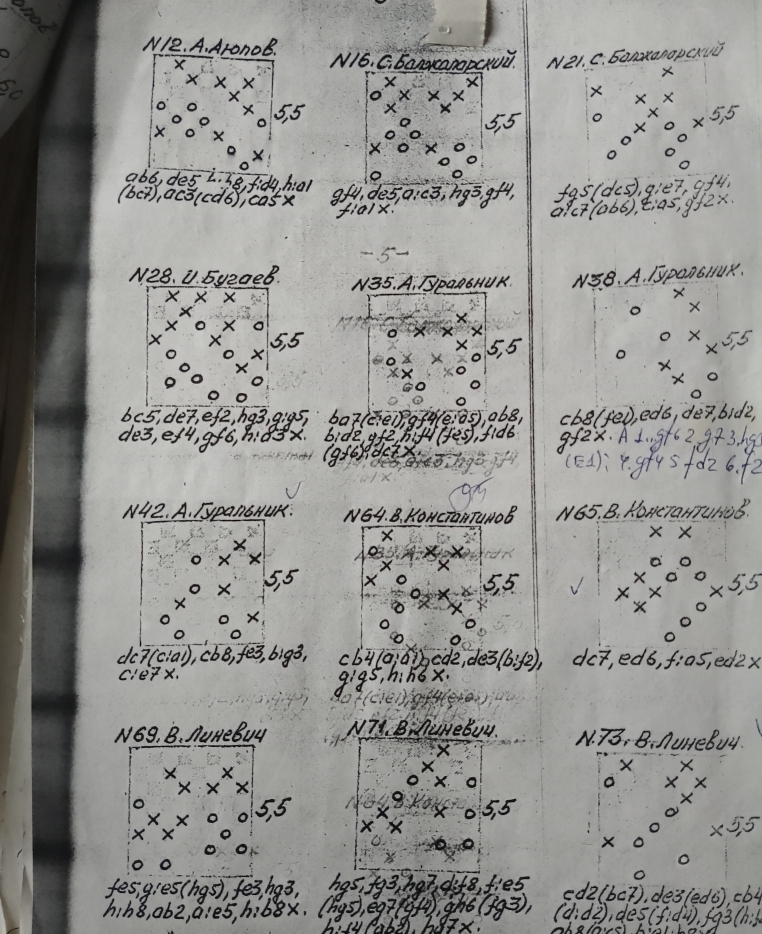 N12. А. Аюпов.
5,5
ab6, de5 h:h8, f:d4, h:a1
(bc7), ac3(cd6), ca5x
N16. С. Балжаларский.
5,5
gf4, de5, a:c3, hg3, gf4,
f:a1x.
N21. С. Балжаларский
5,5
fg5(dc5), g:e7, gf4,
a:c7(ab6), c:a5, gf2x.
-5-
N28. И. Бугаев.
5,5
bc5, de7, ef2, hg3, g:g5,
de3, ef4, gf6, h:d3x.
N35. А. Гуральник
5,5
ba7(c:e1), gf4(e:a5), ab8,
b:d2, gf2, h:f4(fe5), f:d6
(gf6), dc7x.
N38. А. Гуральник.
5,5
cb8(fe1), ed6, de7, b:d2,
gf2x.
N42. А. Гуральник.
5,5
dc7(c:a1), cb8, fe3, b:g3,
c:e7x.
N64. В. Константинов
5,5
cb4(a:a1), cd2, de3(b:f2),
g:g5, h:h6x.
N65. В. Константинов.
5,5
dc7, ed6, f:a5, ed2x
N69. В. Линевич
5,5
fe5, g:e5(hg5), fe3, hg3,
h:h8, ab2, a:e5, h:b8x.
N71. В. Линевич.
5,5
hg5, fg3, hg7, d:f8, f:e5
(hg5), eg7(gf4), gh6(fg3),
h:f4(ab2), hg7x.
N.73. В. Линевич.
5,5
cd2(bc7), de3(ed6), cb4
(d:d2), de5(f:d4), fg3